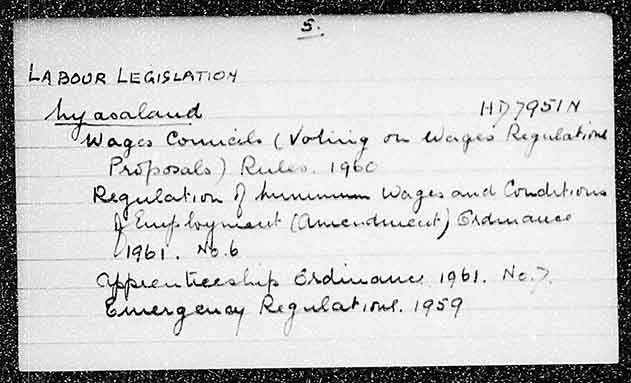 5.
LABOUR LEGISLATION
Nyasaland HD7951N
Wages Councils (Voting on Wages Regulations
Proposals) Rules. 1960
Regulation of Minimum Wages and Conditions
of Employment (Amendment) Ordinance
1961. No. 6
Apprenticeship Ordinance 1961. No. 7.
Emergency Regulations. 1959